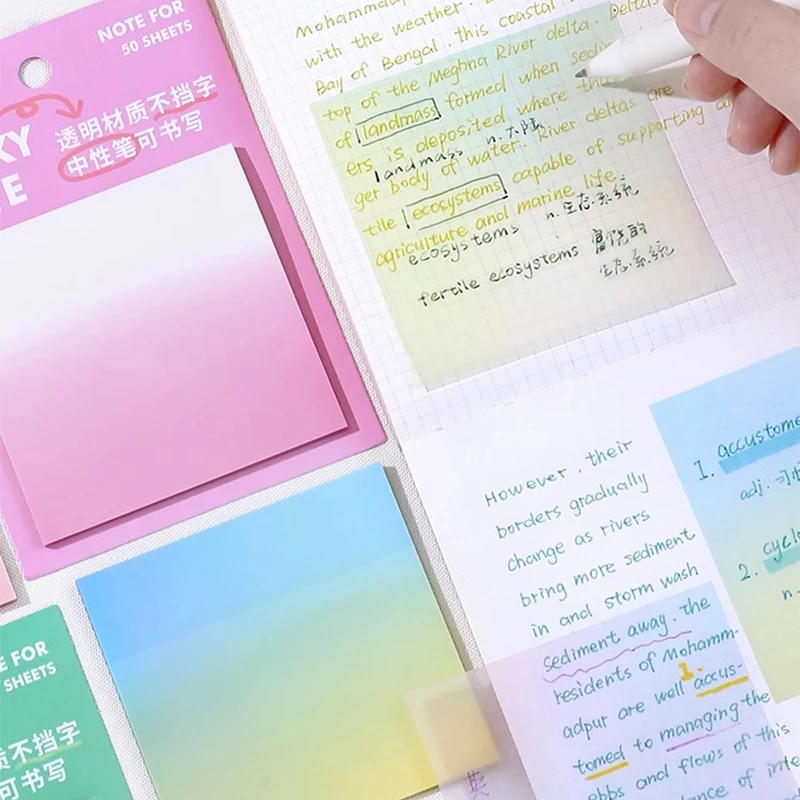 NOTE FOR
50 SHEETS
透明材质不挡字
中性笔可书写
KY
E
E FOR
SHEETS
质不挡字
可书写
with the weather. D
Bay of Bengal. this coastal
top of the Meghna River delta. Deltas
of landmass formed when sedi
ers is deposited where the
landmass n.大陆
ger body of water. River deltas are
tile ecosystems capable of supporting
agriculture and marine life.
ecosystems n.生态系统
fertile ecosystems 富饶的
生态系统
However, their
borders gradually
change as rivers
bring more sediment
in and storm wash
sediment away. the
residents of Mohamm-
adpur are well accus-
1
tomed to managing the
ebbs and flows of this
lance of inte
1. accustome
adj. 习惯
2. cycl
n.
英